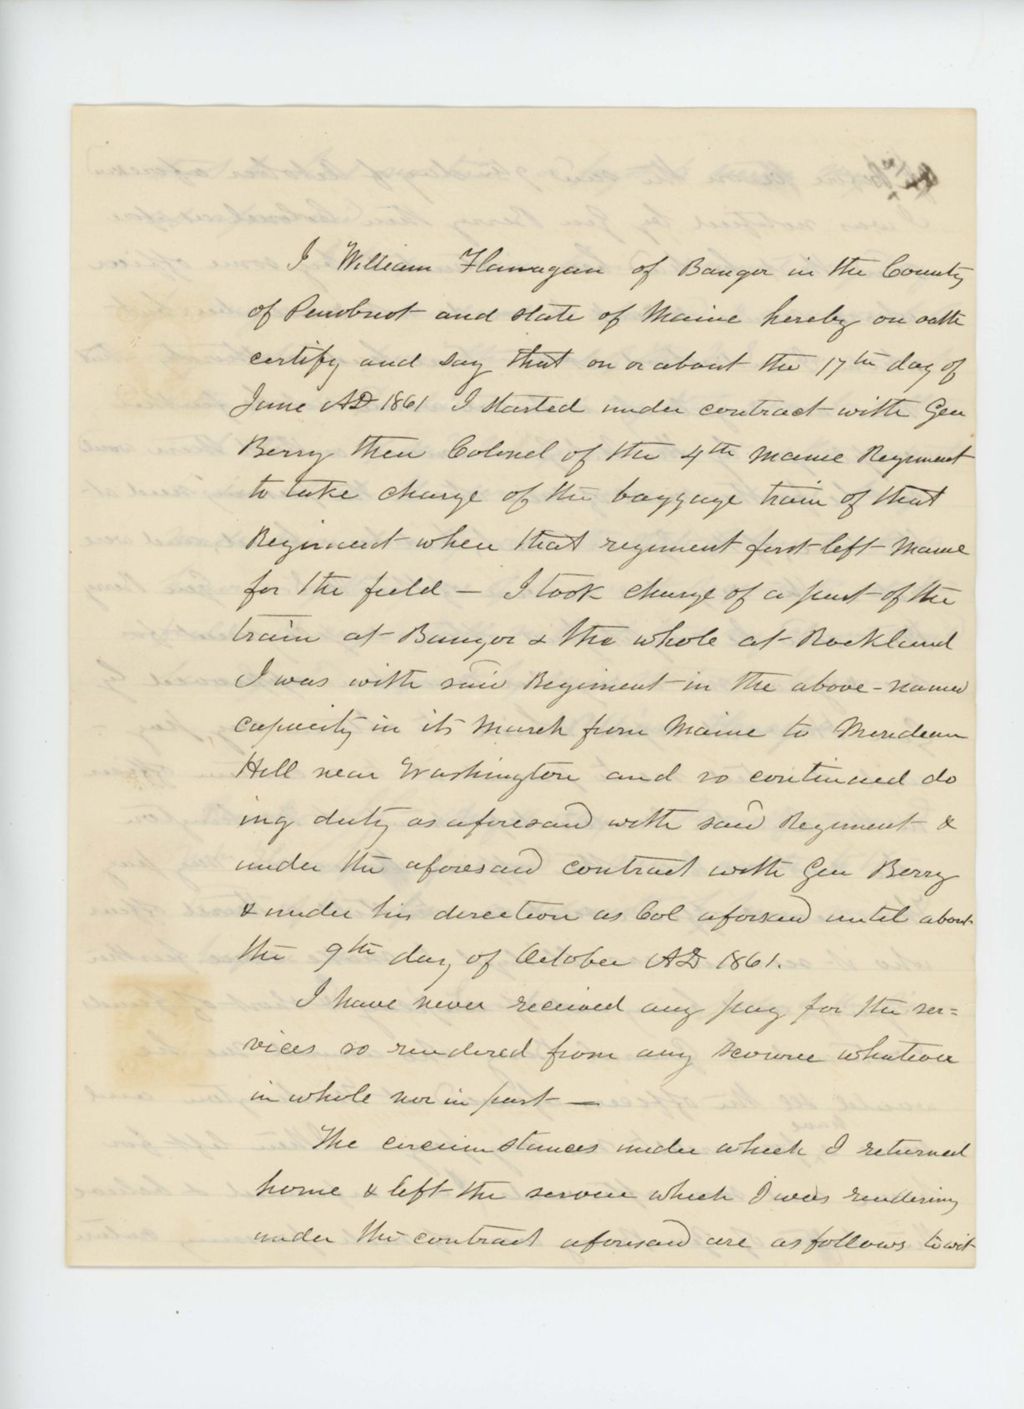 I William Flannagan of Bangor in the County
of Penobscot and state of Maine hereby on oath
certify and say that on or about the 17th day of
June AD 1861 I started under contract with Gen
Berry then Colonel of the 4th Maine Regiment
to take charge of the baggage train of that
Regiment when that regiment first left Maine
for the field — I took charge of a part of the
train at Bangor & the whole at Rockland
I was with said Regiment in the above-named
capacity in its march from Maine to Meridean
Hill near Washington and so continued do
ing duty as aforesaid with said Regiment &
under the aforesaid contract with Gen Berry
& under his direction as Col aforesaid until about
the 9th day of October AD 1861.
I have never received any pay for the ser=
vices so rendered from any source whatever
in whole nor in part —
The circumstances under which I returned
home & left the service which I was rendering
under the contract aforesaid are as follows to wit